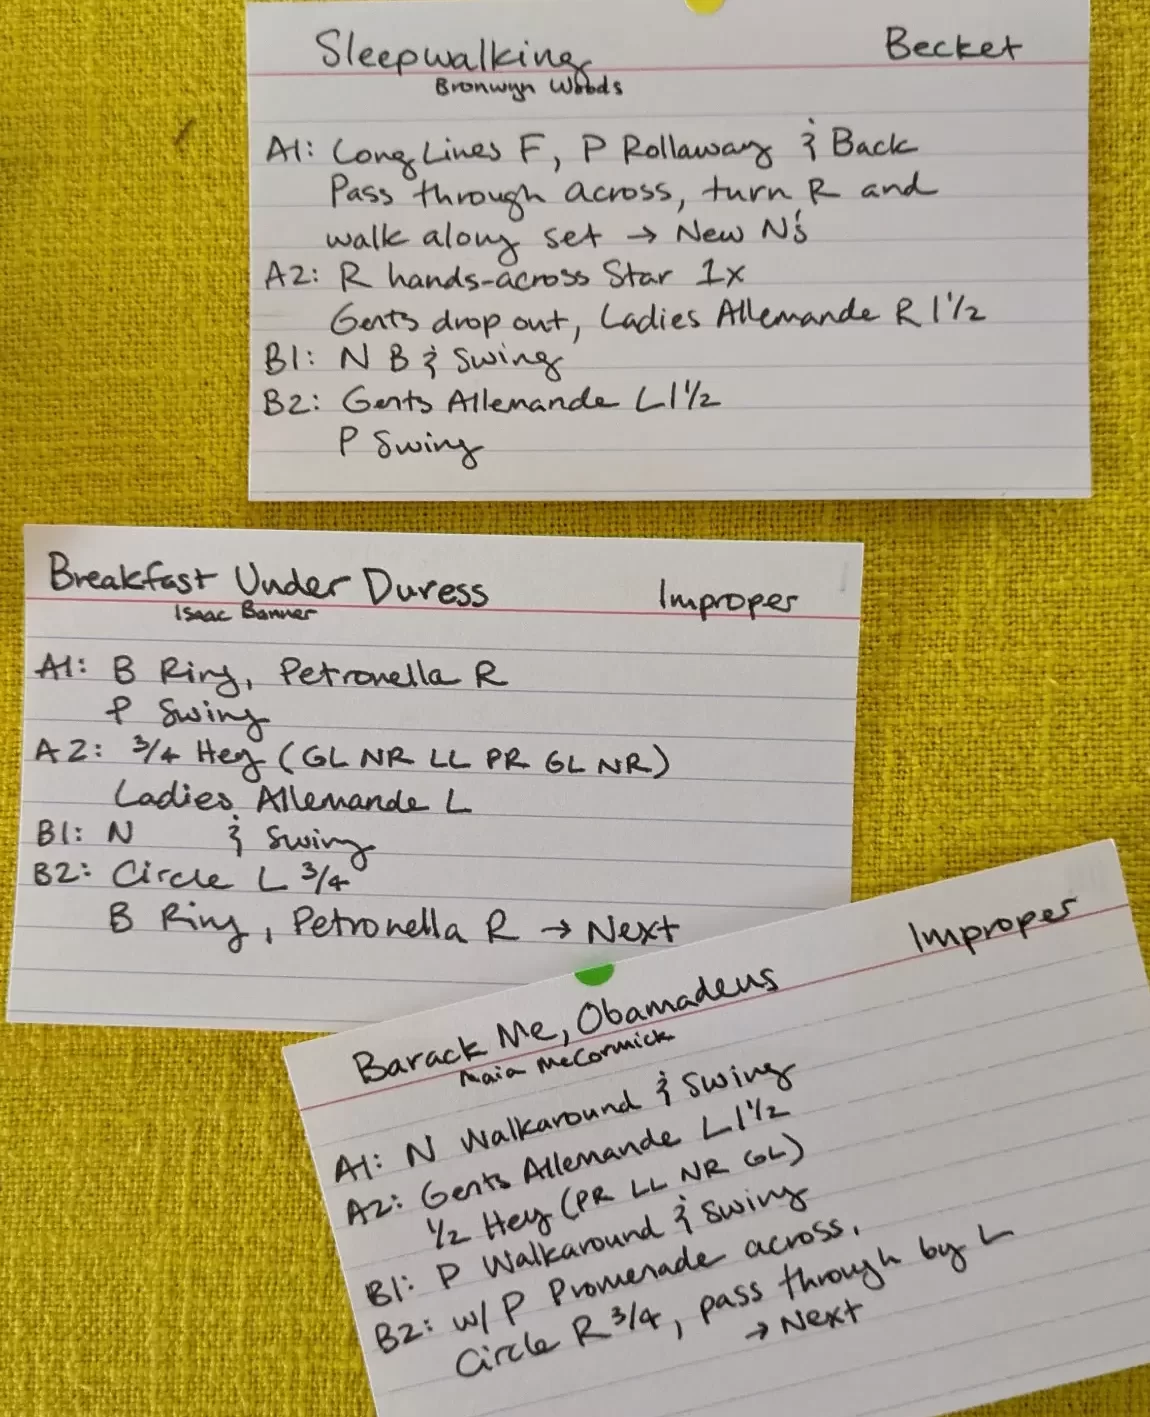 Sleepwalking Becket
Bronwyn Woods
A1: Long Lines F, P Rollaway & Back
Pass through across, turn R and
walk along set → New N's
A2: R hands-across Star 1x
Gents drop out, Ladies Allemande R 1 1/2
B1: N B & Swing
B2: Gents Allemande L 1 1/2
P Swing
Breakfast Under Duress Improper
Isaac Banner
A1: B Ring, Petronella R
P Swing
A2: 3/4 Hey (GL NR LL PR GL NR)
Ladies Allemande L
B1: N & Swing
B2: Circle L 3/4
B Ring, Petronella R → Next
Barack Me, Obamadeus Improper
Maia McCormick
A1: N Walkaround & Swing
A2: Gents Allemande L 1 1/2
1/2 Hey (PR LL NR GL)
B1: P Walkaround & Swing
B2: w/ P Promenade across,
Circle R 3/4, pass through by L
→ Next